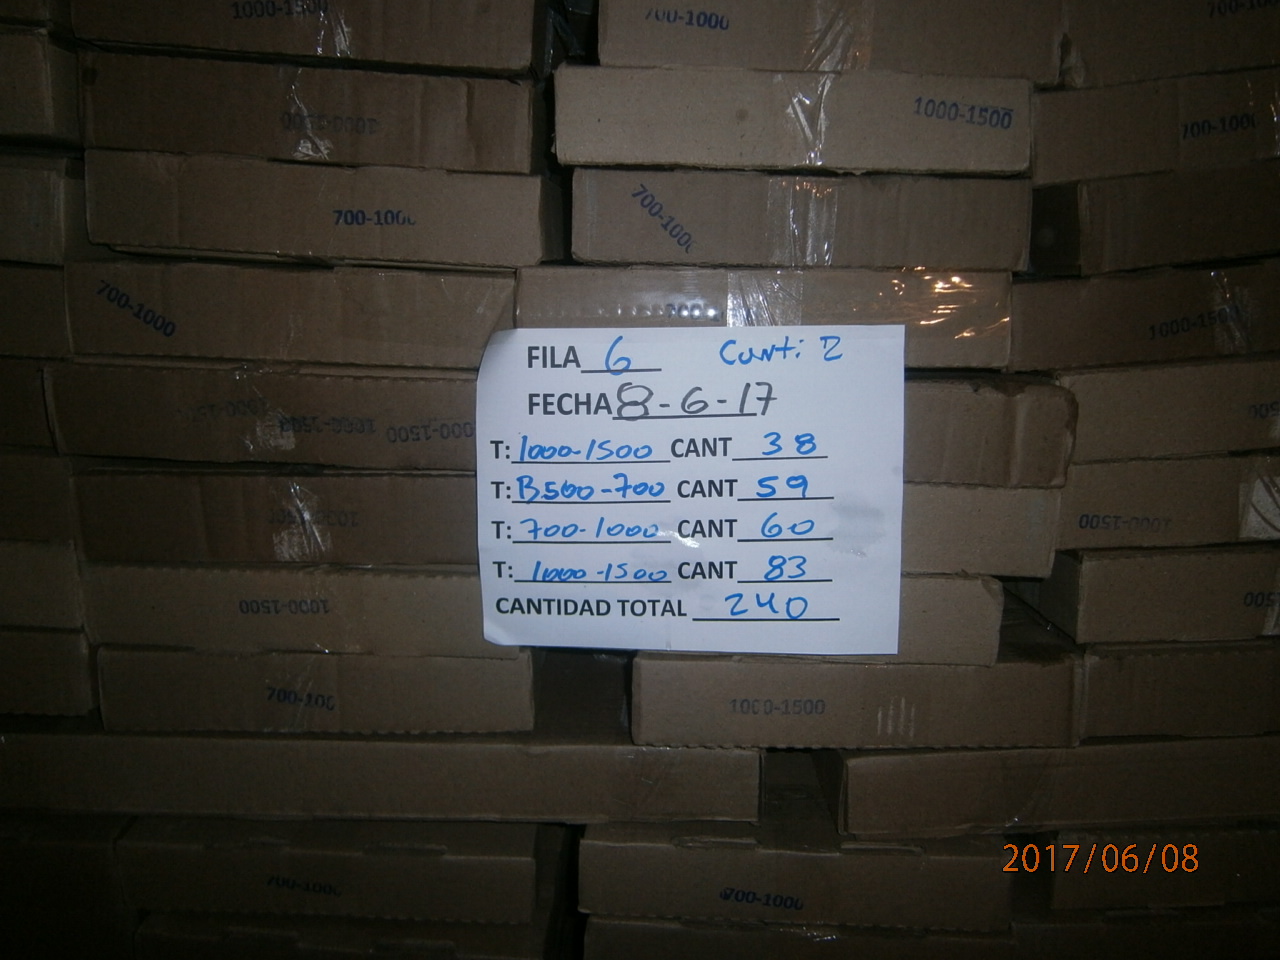 1000-1500
700-1000
1000-1500
1000-1500
700-100
700-1000
700-1000
1000-1500
FILA 6 Cant: 2
FECHA 8-6-17
T: 1000-1500 CANT 38
T: B500-700 CANT 59
T: 700-1000 CANT 60
T: 1000-1500 CANT 83
CANTIDAD TOTAL 240
1000-1500
1000-1500
700-100
1000-1500
2017/06/08
700-1000
700-1000